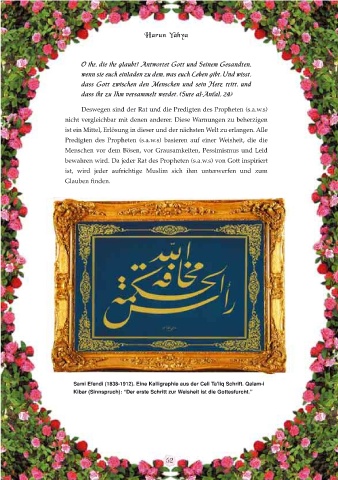 Harun Yahya
O ihr, die ihr glaubt! Antwortet Gott und Seinem Gesandten,
wenn sie euch einladen zu dem, was euch Leben gibt. Und wisst,
dass Gott zwischen den Menschen und sein Herz tritt, und
dass ihr zu Ihm versammelt werdet. (Sure al-Anfal, 24)
Deswegen sind der Rat und die Predigten des Propheten (s.a.w.s)
nicht vergleichbar mit denen anderer. Diese Warnungen zu beherzigen
ist ein Mittel, Erlösung in dieser und der nächsten Welt zu erlangen. Alle
Predigten des Propheten (s.a.w.s) basieren auf einer Weisheit, die die
Menschen vor dem Bösen, vor Grausamkeiten, Pessimismus und Leid
bewahren wird. Da jeder Rat des Propheten (s.a.w.s) von Gott inspiriert
ist, wird jeder aufrichtige Muslim sich ihm unterwerfen und zum
Glauben finden.
رأس الحكمة مخافة الله
Sami Efendi (1838-1912). Eine Kalligraphie aus der Celi Ta'liq Schrift. Qalam-i
Kibar (Sinnspruch): "Der erste Schritt zur Weisheit ist die Gottesfurcht."
52